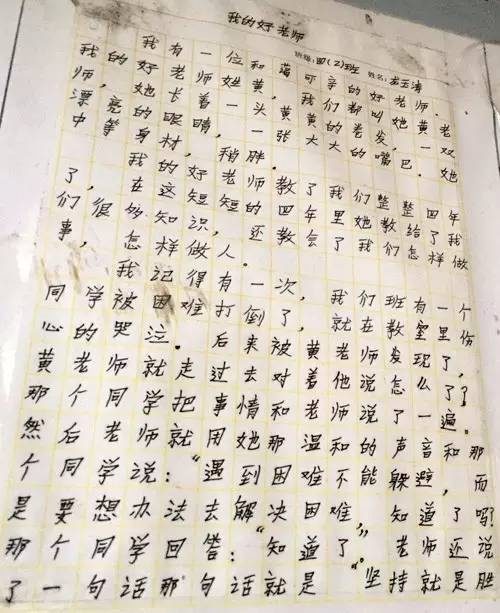 我的好老师
班级:四(2)班 姓名:
我有一位和蔼可亲的好老师.
我的好老师姓黄,我们都叫她黄老
师,她长着一头黄黄的卷发,一双
漂亮的眼睛,一张大大的嘴巴.她
中等身材,稍胖.
我的好老师教了我们整整四年
了,在这短短的四年里她给了我
们很多知识,还教会了我们怎样做
事,怎样做人.
我记得有一次,我们班有一个
同学被困难打倒了,就在教室里伤
心的哭泣.后来被黄老师发现了,
黄老师就走过去对着他说怎么了?
那个同学把事情和老师说了一遍.
然后老师就用她那温和的声音和那
个同学说:“遇到困难不能躲避,而
是要想办法去解决困难,”知道了吗?
那个同学回答:“知道了”.老师还说
了一句话那句话就是“坚持就是胜